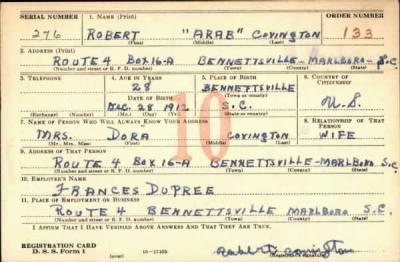 SERIAL NUMBER 1. NAME (Print) ORDER NUMBER
276 ROBERT "ARAB" COVINGTON 133
(First) (Middle) (Last)
2. ADDRESS (Print)
ROUTE 4 BOX 16-A BENNETTSVILLE-MARLBORO-S.C
(Number and street or R. F. D. number) (Town) (County) (State)
3. TELEPHONE 4. AGE IN YEARS 5. PLACE OF BIRTH 6. COUNTRY OF CITIZENSHIP
28 BENNETTSVILLE
DATE OF BIRTH (Town or county)
DEC. 28 1912 S.C. U.S.
(Exchange) (Number) (Mo.) (Day) (Yr.) (State or country)
7. NAME OF PERSON WHO WILL ALWAYS KNOW YOUR ADDRESS 8. RELATIONSHIP OF THAT PERSON
MRS. DORA COVINGTON WIFE
(Mr., Mrs., Miss) (First) (Middle) (Last)
10
9. ADDRESS OF THAT PERSON
ROUTE 4 BOX 16-A BENNETTSVILLE-MARLBORO S.C.
(Number and street or R. F. D. number) (Town) (County) (State)
10. EMPLOYER'S NAME
FRANCES DUPREE
11. PLACE OF EMPLOYMENT OR BUSINESS
ROUTE 4 BENNETTSVILLE MARLBORO S.C.
(Number and street or R. F. D. number) (Town) (County) (State)
I AFFIRM THAT I HAVE VERIFIED ABOVE ANSWERS AND THAT THEY ARE TRUE.
REGISTRATION CARD
D. S. S. Form 1 16-17105 Robert Covington